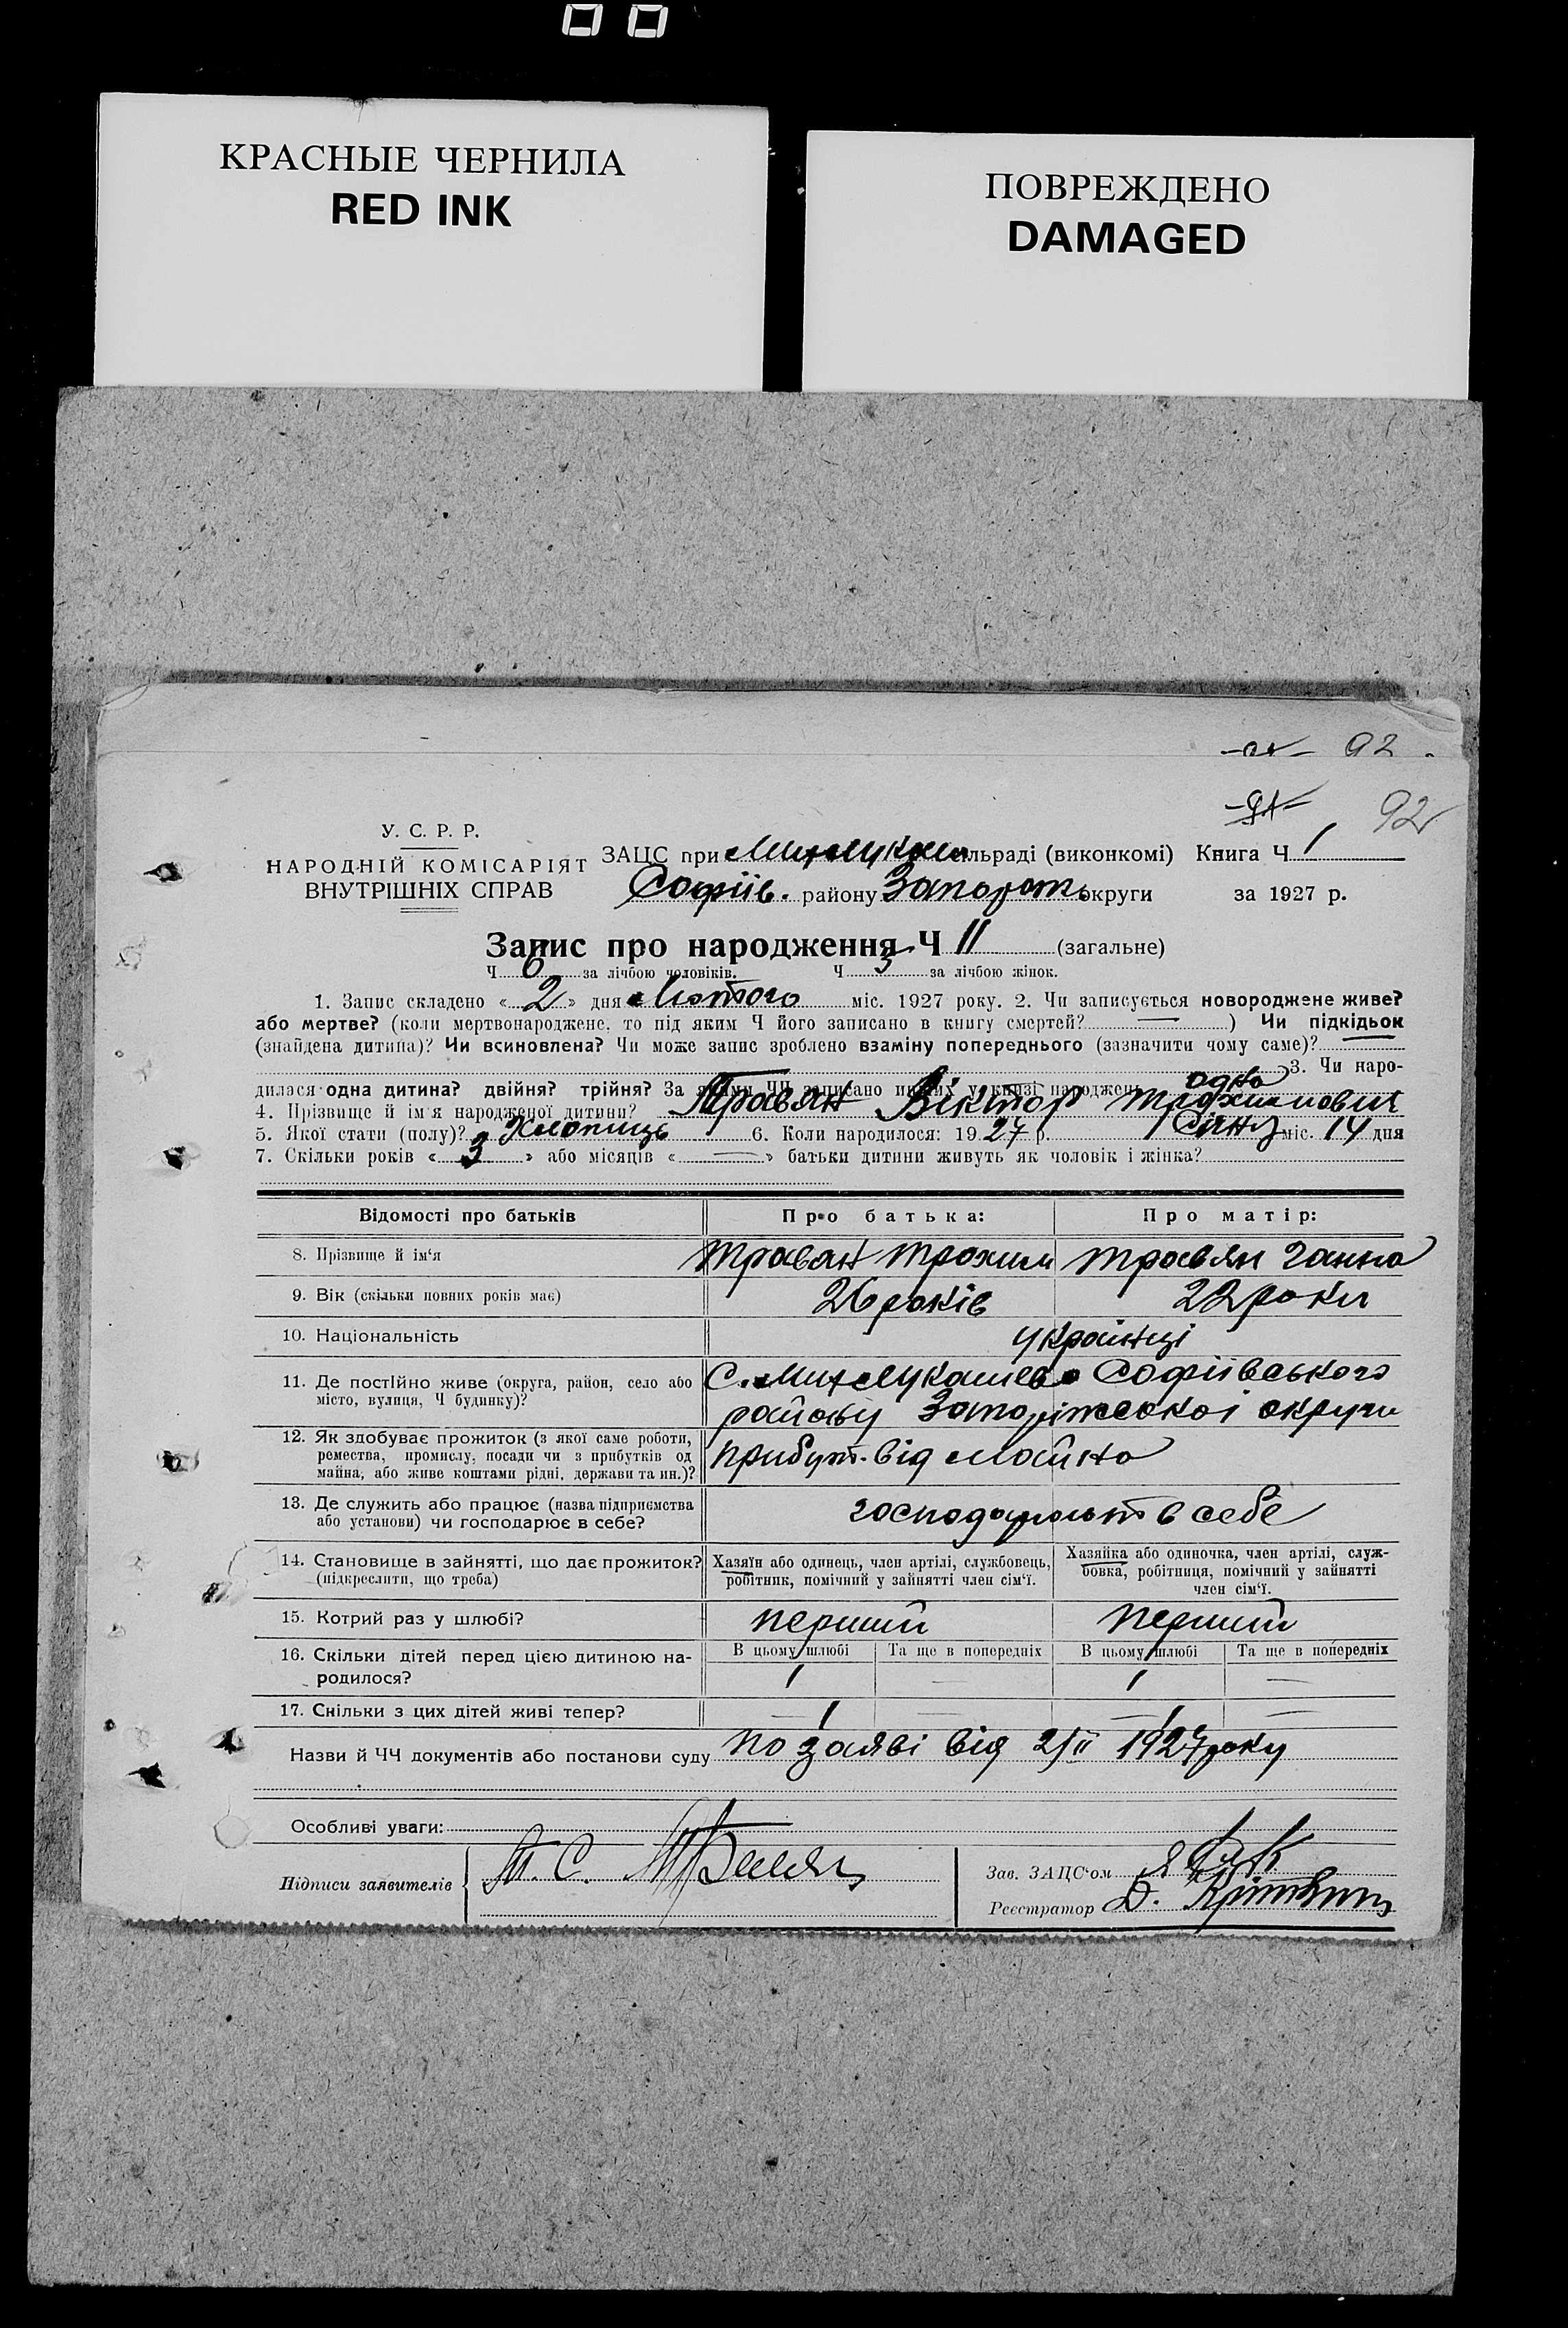 КРАСНЫЕ ЧЕРНИЛА
RED INK
ПОВРЕЖДЕНО
DAMAGED
92
92
У. С. Р. Р.
НАРОДНІЙ КОМІСАРІЯТ
ВНУТРІШНІХ СПРАВ
ЗАЦС при Мих Лукаш сільраді (виконкомі) Книга Ч 1
Софіїв. району Запоріж округи за 1927 р.
Запис про народження Ч 11 (загальне)
Ч 6 за лічбою чоловіків. Ч 5 за лічбою жінок.
1. Запис складено « 2 » дня Лютого міс. 1927 року. 2. Чи записується новороджене живе?
або мертве? (коли мертвонароджене, то під яким Ч його записано в книгу смертей? — ) Чи підкідьок
(знайдена дитина)? Чи всиновлена? Чи може запис зроблено взаміну попереднього (зазначити чому саме)? —
3. Чи наро-
дилася одна дитина? двійня? трійня? За якими ЧЧ записано инших у книзі народжень одна
4. Прізвище й ім'я народженої дитини? Травян Віктор Трохимович
5. Якої стати (полу)? Хлопиць 6. Коли народилося: 1927 р. Січня міс. 14 дня
7. Скільки років « 3 » або місяців « — » батьки дитини живуть як чоловік і жінка?
Відомості про батьків Про батька: Про матір:
8. Прізвище й ім'я Траван Трохим Травян Ганна
9. Вік (скільки повних років має) 26 років 22 роки
10. Національність українці
11. Де постійно живе (округа, район, село або місто, вулиця, Ч будинку)? С. Мих Лукашево Софіївського
району Запоріжської округи
12. Як здобуває прожиток (з якої саме роботи,
ремества, промислу, посади чи з прибутків од
майна, або живе коштами рідні, держави та ин.)? прибут. від майна
13. Де служить або працює (назва підприємства
або установи) чи господарює в себе? господарюють в себе
14. Становище в зайнятті, що дає прожиток?
(підкреслити, що треба)
Хазяїн або одинець, член артілі, службовець,
робітник, помічний у зайнятті член сім'ї.
Хазяйка або одиночка, член артілі, служ-
бовка, робітниця, помічний у зайнятті
член сім'ї.
15. Котрий раз у шлюбі? перший перший
16. Скільки дітей перед цією дитиною на-
родилося?
В цьому шлюбі Та ще в попередніх В цьому шлюбі Та ще в попередніх
1 — 1 —
17. Скільки з цих дітей живі тепер? 1 — 1 —
Назви й ЧЧ документів або постанови суду по заяві від 2/ІІ 1927 року
Особливі уваги:
Підписи заявителів
Зав. ЗАЦС'ом
Реєстратор